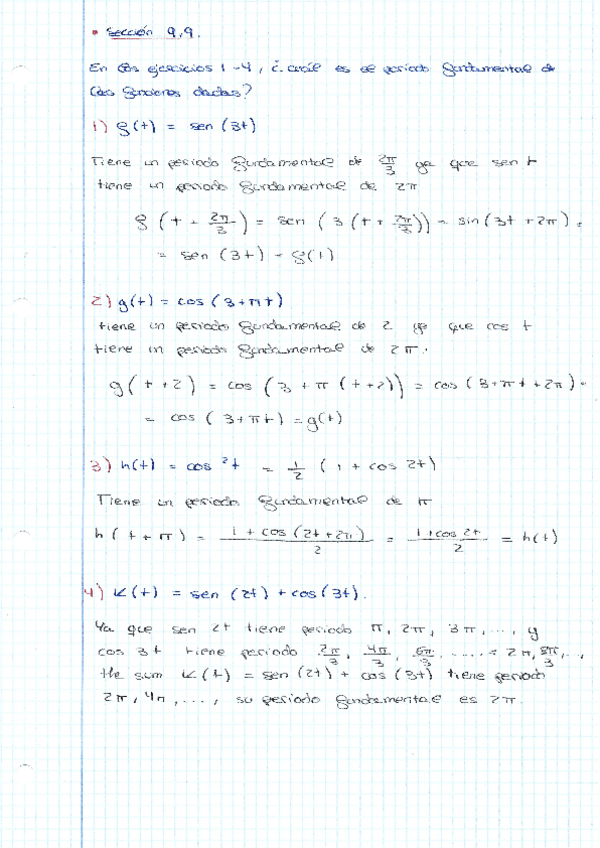 • Sección 9.9.
En los ejercicios 1-4, ¿cuál es el periodo fundamental de
las funciones dadas?
1) f(t) = sen (3t)
Tiene un periodo fundamental de 2π/3 ya que sen t
tiene un periodo fundamental de 2π
f (t + 2π/3) = sen (3 (t + 2π/3)) = sin (3t + 2π) =
= sen (3t) = f(t)
2) g(t) = cos (3+πt)
tiene un periodo fundamental de 2 ya que cos t
tiene un periodo fundamental de 2π.
g(t+2) = cos (3 + π (t+2)) = cos (3+πt+2π) =
= cos (3+πt) = g(t)
3) h(t) = cos ²t = 1/2 (1 + cos 2t)
Tiene un periodo fundamental de π
h (t+π) = 1 + cos (2t+2π)/2 = 1+cos 2t/2 = h(t)
4) K(t) = sen (2t) + cos (3t).
Ya que sen 2t tiene periodo π, 2π, 3π, ..., y
cos 3t tiene periodo 2π/3, 4π/3, 6π/3 ..... = 2π, 8π/3, ..,
the sum K(t) = sen (2t) + cos (3t) tiene periodo
2π, 4π, ..., su periodo fundamental es 2π.